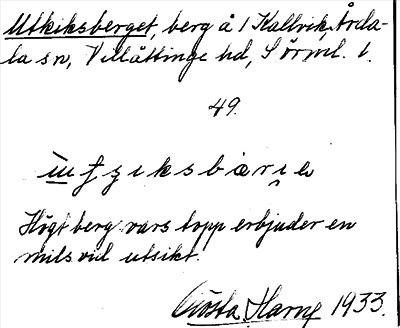 Utkiksberget, berg å 1 Kallvik, Årda-
la sn, Villåttinge hd, Sörml. l.
49.
Högt berg vars topp erbjuder en
milsvid utsikt.
Gösta Harne 1933.